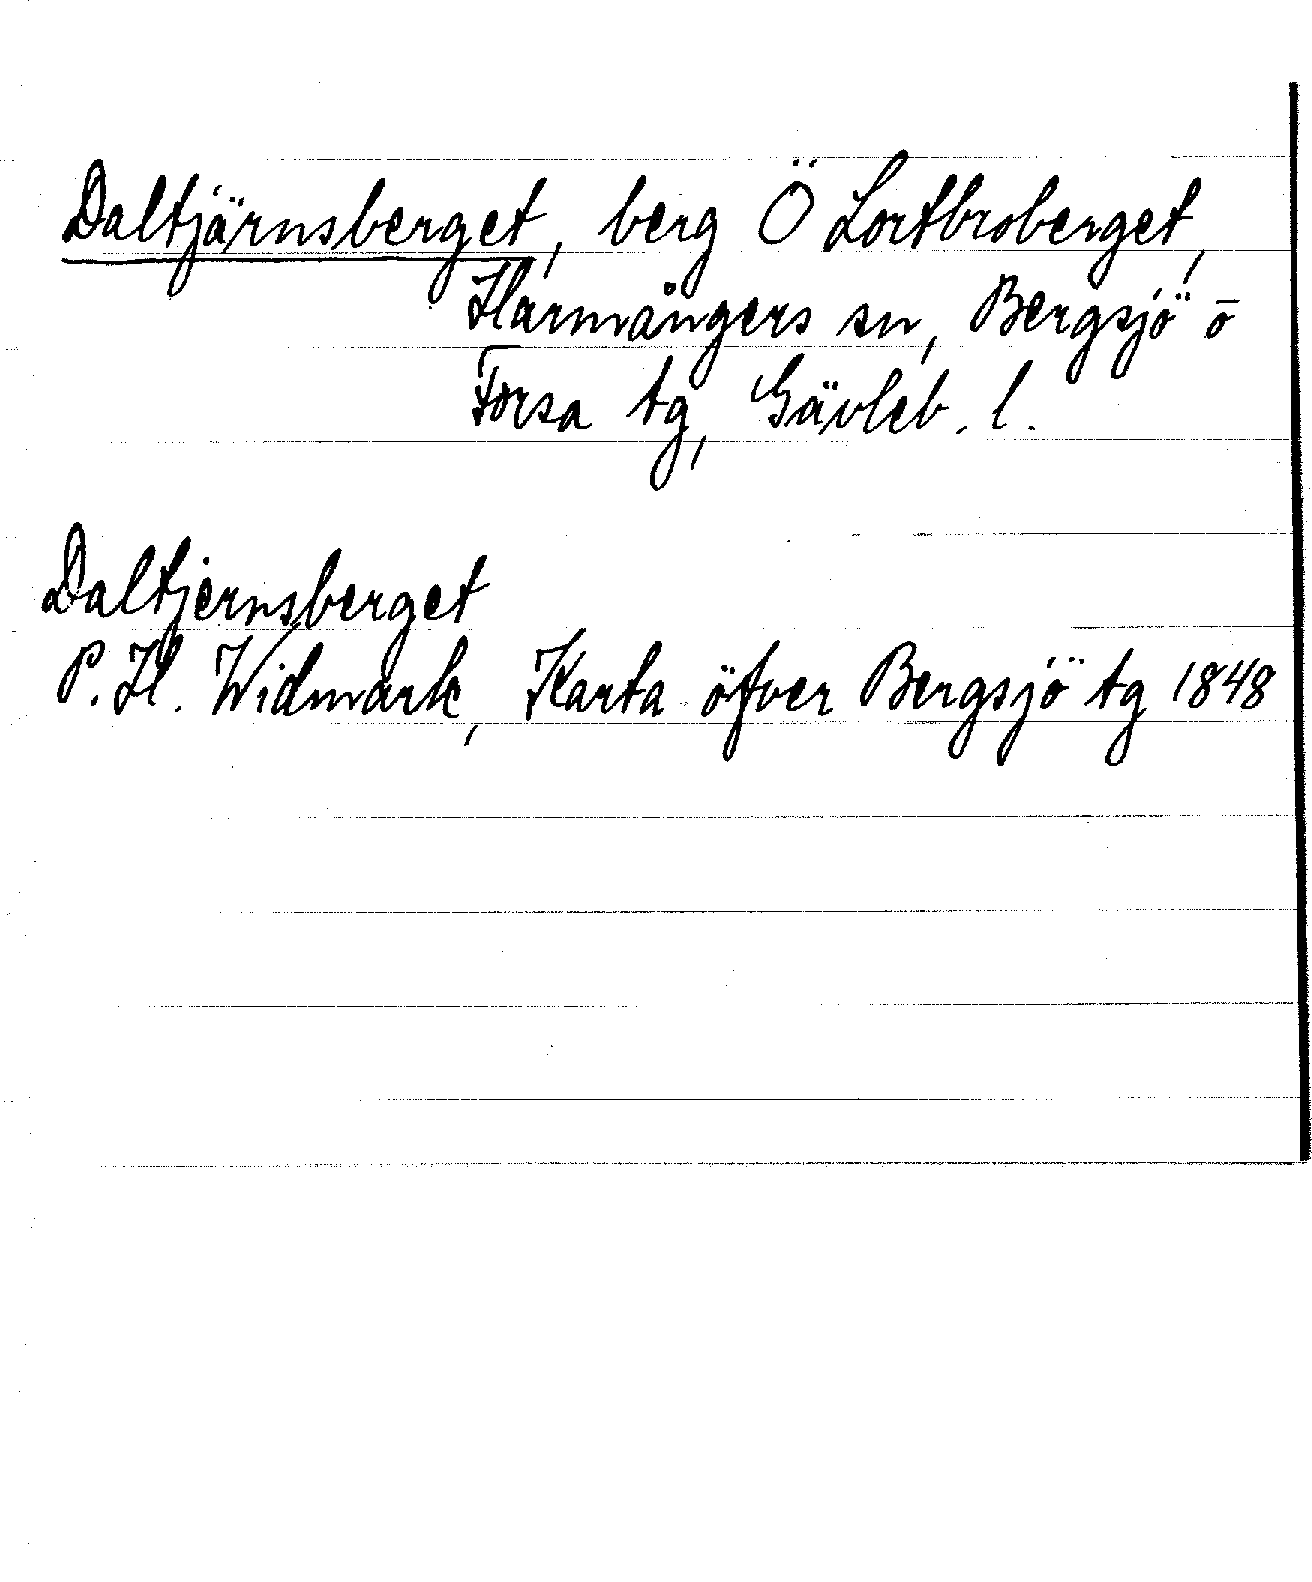 Daltjärnsberget, berg Ö Lortbroberget,
Harmångers sn, Bergsjö o
Forsa tg, Gävleb. l.
Daltjernsberget
P. H. Widmark, Karta öfver Bergsjö tg 1848